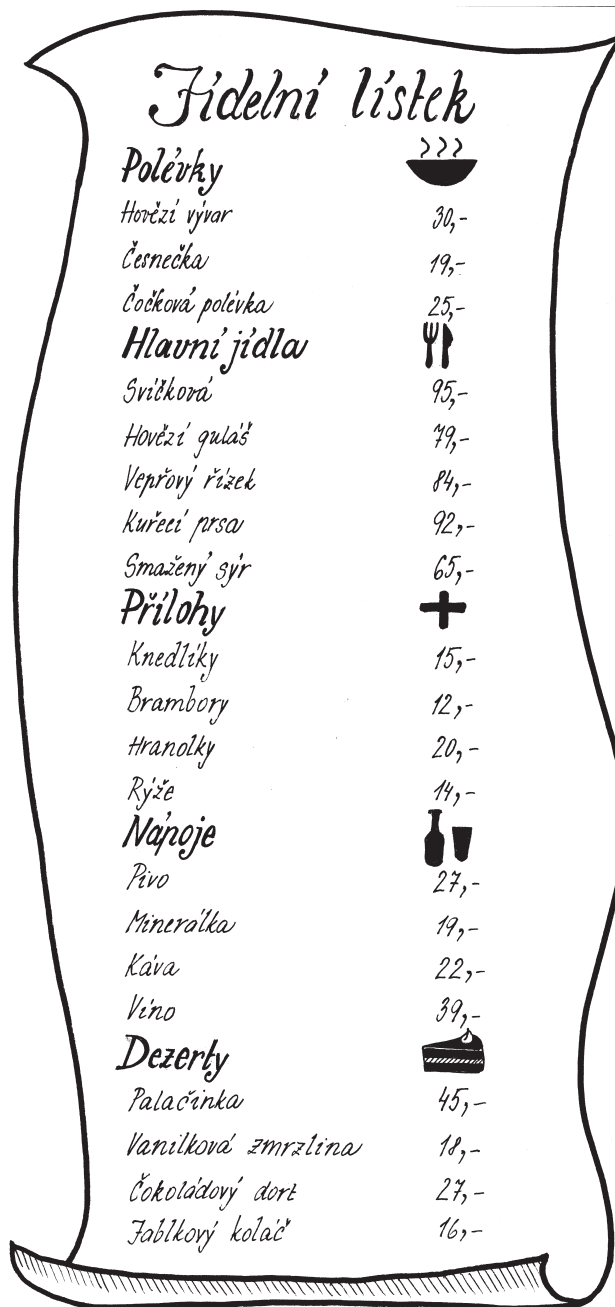 Jídelní lístek
Polévky
Hovězí vývar 30,-
Česnečka 19,-
Čočková polévka 25,-
Hlavní jídla
Svíčková 95,-
Hovězí guláš 79,-
Vepřový řízek 84,-
Kuřecí prsa 92,-
Smažený sýr 65,-
Přílohy
Knedlíky 15,-
Brambory 12,-
Hranolky 20,-
Rýže 14,-
Nápoje
Pivo 27,-
Minerálka 19,-
Káva 22,-
Víno 39,-
Dezerty
Palačinka 45,-
Vanilková zmrzlina 18,-
Čokoládový dort 27,-
Jablkový koláč 16,-